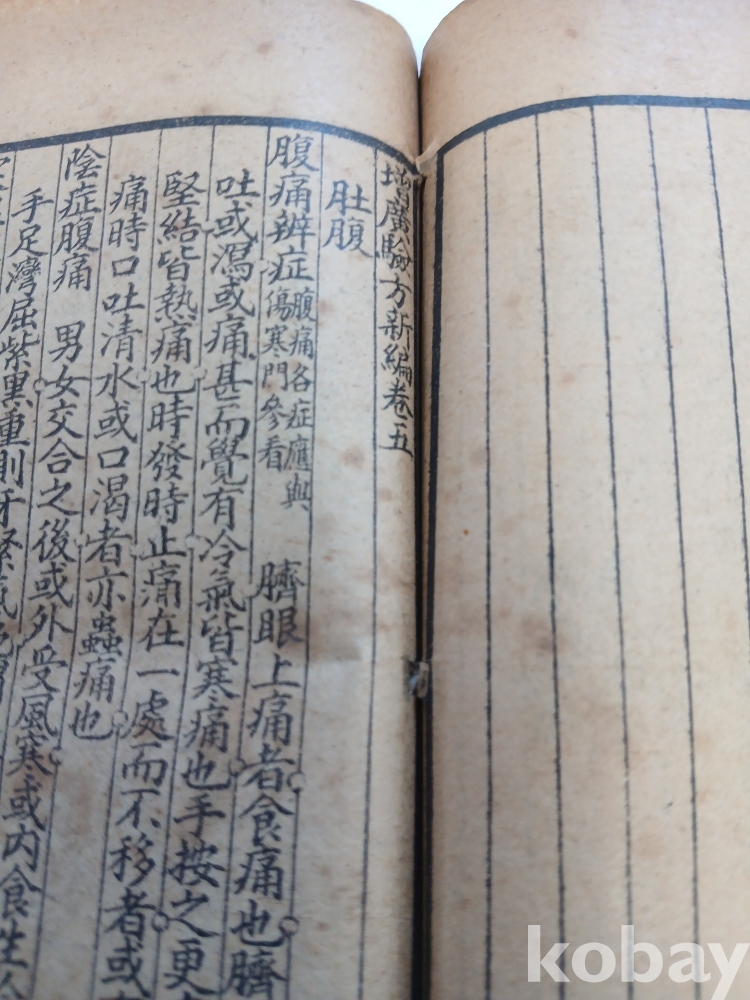 增廣驗方新編卷五
肚腹
腹痛辨症腹痛各症應與傷寒門參看 臍眼上痛者食痛也臍
吐或瀉或痛甚而覺有冷氣皆寒痛也手按之更
堅結皆熱痛也時發時止痛在一處而不移者或
痛時口吐清水或口渴者亦蟲痛也
陰症腹痛 男女交合之後或外受風寒或內食生
手足灣屈紫黑重則牙緊氣
kobay